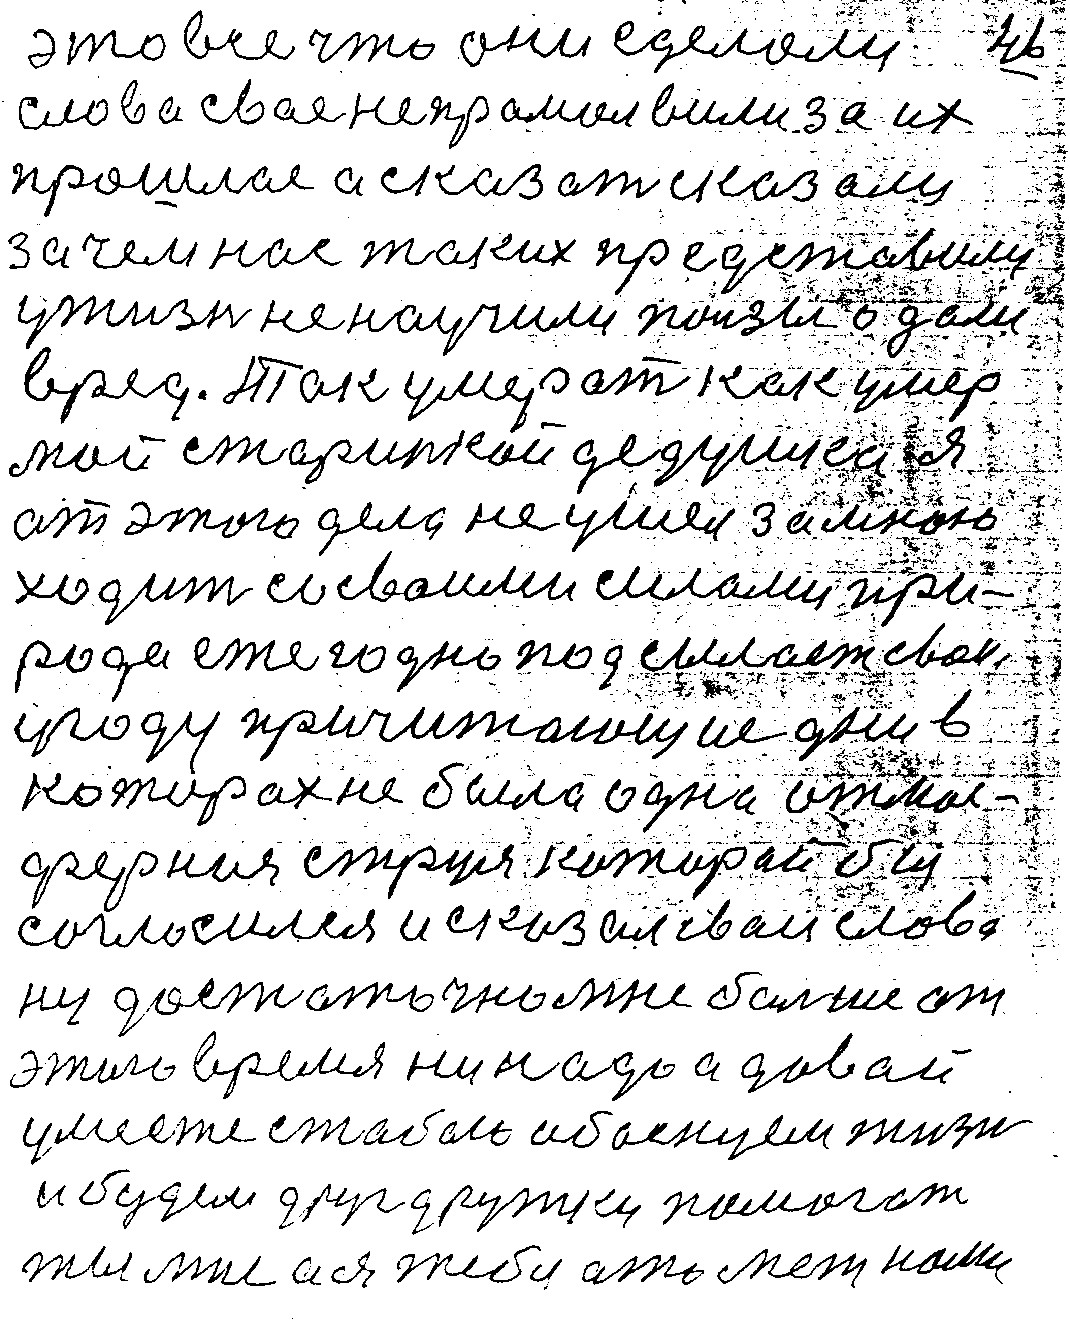 это все что они сделоли 46
слова свае непрамолвили за их
прошлае а сказат сказали
зачем нас таких представили
ужизн ненаучили попзяло дали
вред. Так умерат как умер
мой старинкой дедушка я
ат этого дела не ушел замною
ходит сосваими силами при-
рода ежегодно подсылает сваи
угоду причитающие дни в
которах не была одна отмас-
ферния струя которай бы
согласился и сказал сваи слова
ну достаточно мне балше от
этого время ни надо а давай
умеете стабою обоснуем жизн
и будем друг дружки помогат
ты мне а я тебе ато меж нами